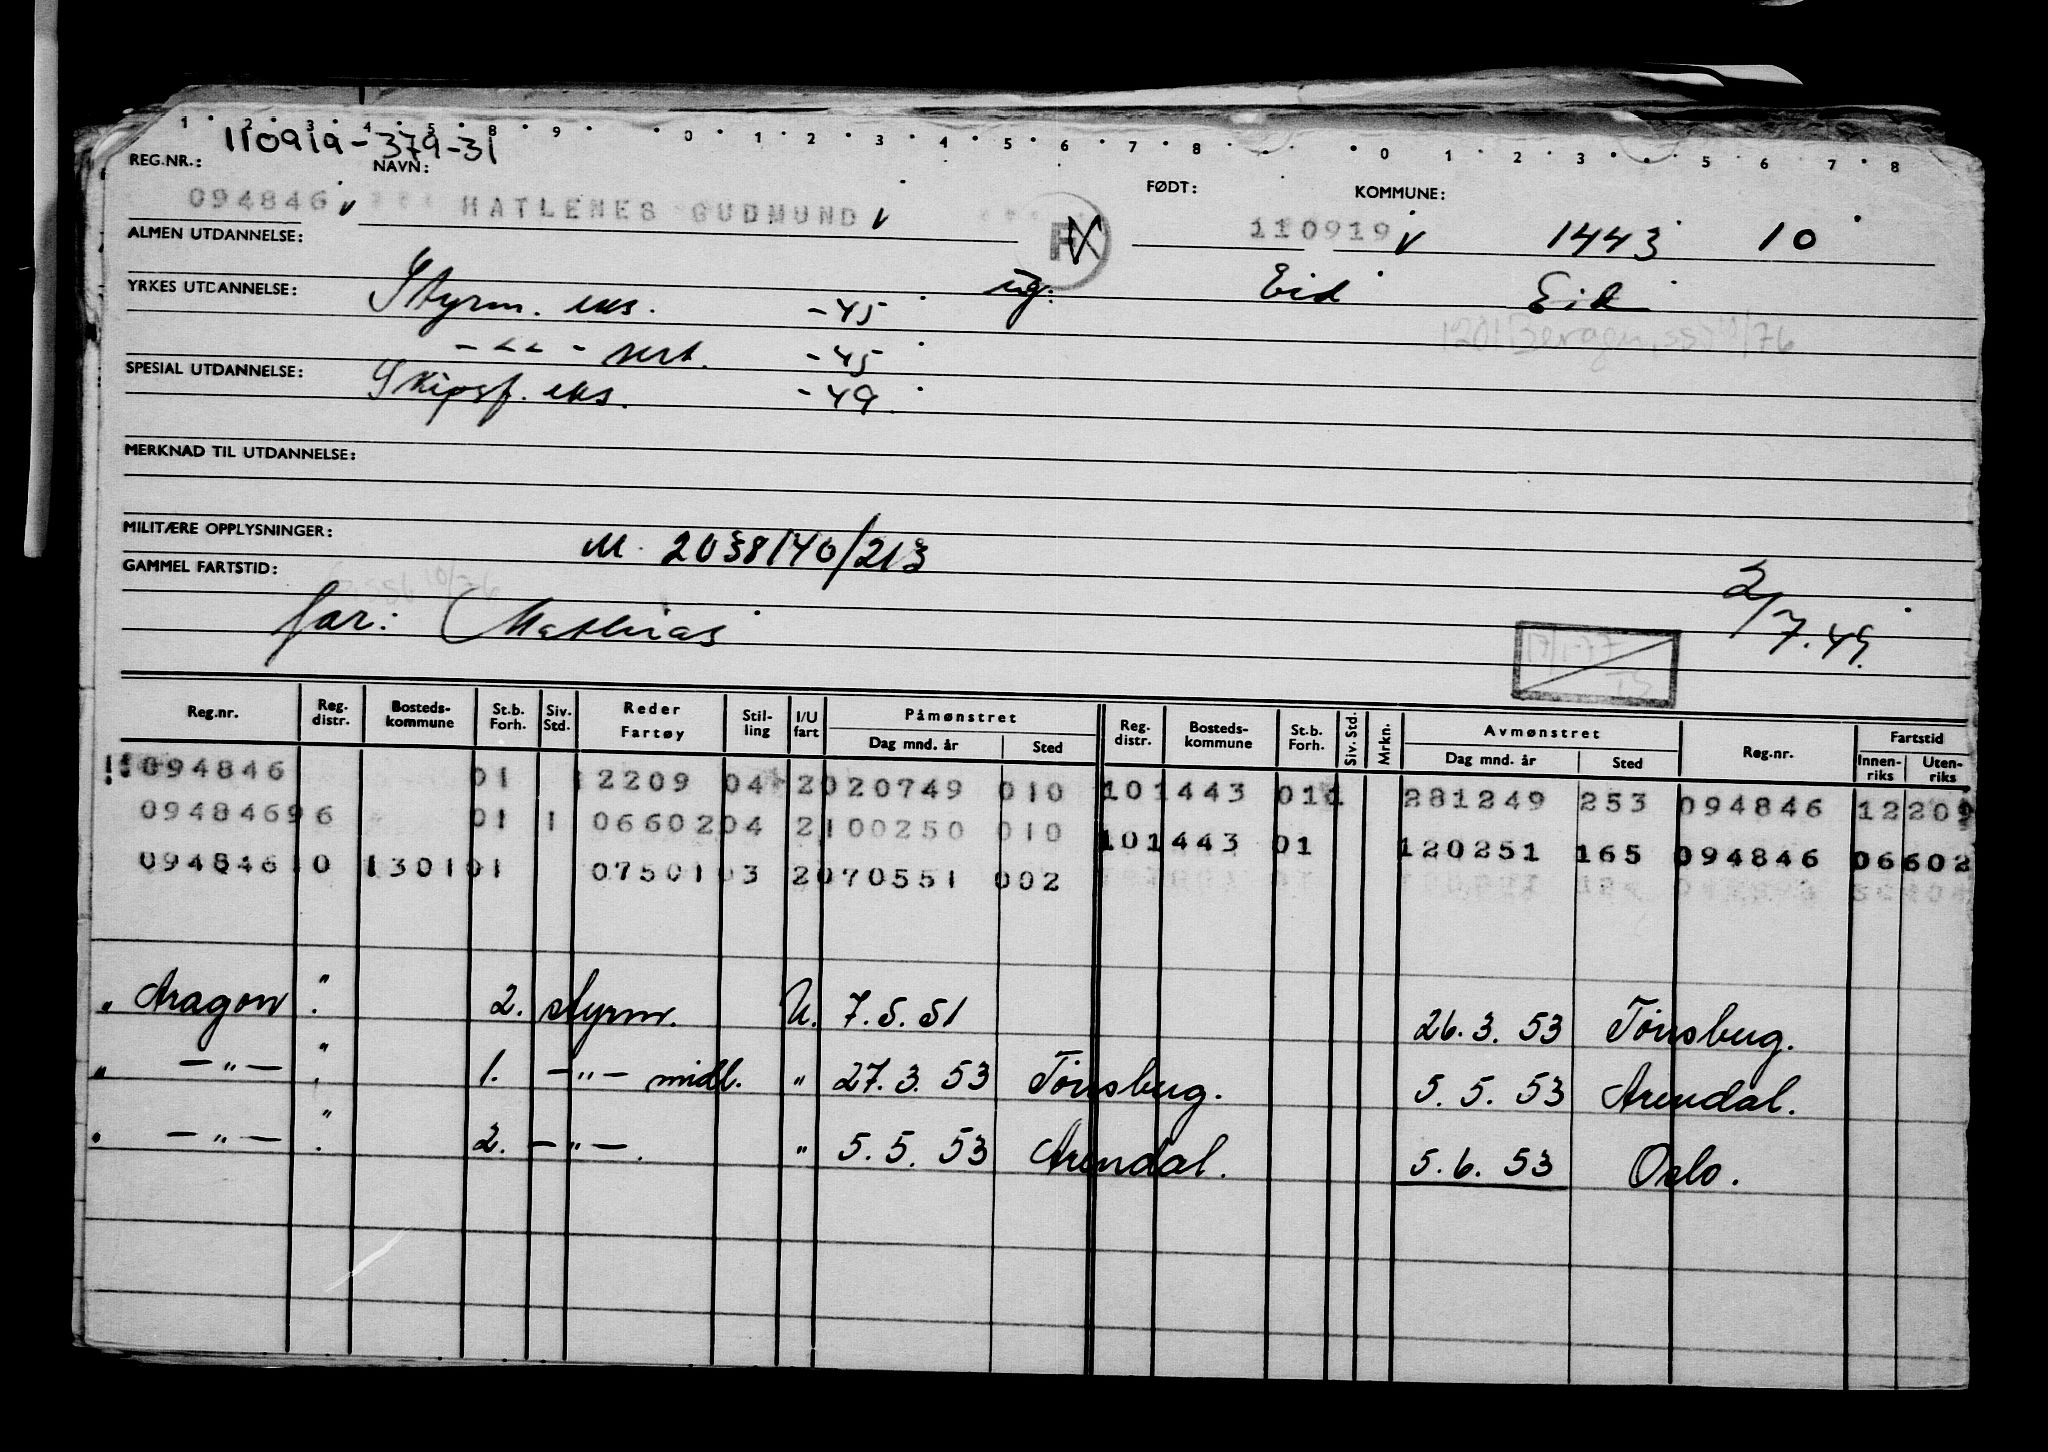 110919-379-31
REG.NR.: NAVN: FØDT: KOMMUNE:
094846 HATLENES GUDMUND 110919 1443 10
ALMEN UTDANNELSE: ug. Eid Eid
YRKES UTDANNELSE: Styrm. eks. -45
-"- sert. -45
SPESIAL UTDANNELSE: Skipsf. eks. -49
MERKNAD TIL UTDANNELSE:
MILITÆRE OPPLYSNINGER: M. 2038/40/213
GAMMEL FARTSTID: 2/7.49.
far: Mathias
Reg.nr. Reg. distr. Bosteds-kommune St.b. Forh. Siv. Std. Reder Fartøy Stil-ling I/U fart Påmønstret Dag mnd. år Sted Reg. distr. Bosteds-kommune St.b. Forh. Siv. Std. Mrkn. Avmønstret Dag mnd. år Sted Reg.nr. Fartstid Innen-riks Uten-riks
094846 01 12209 04 2 020749 010 10 1443 01 281249 253 094846 12209
094846 96 01 1 06602 04 2 100250 010 10 1443 01 120251 165 094846 06602
094846 10 1301 01 07501 03 2 070551 002
" Aragon " 2. styrm. U. 7.5.51 26.3.53 Tönsberg.
" -"- " 1. -"- midl. " 27.3.53 Tönsberg. 5.5.53 Arendal.
" -"- " 2. -"-. " 5.5.53 Arendal. 5.6.53 Oslo.